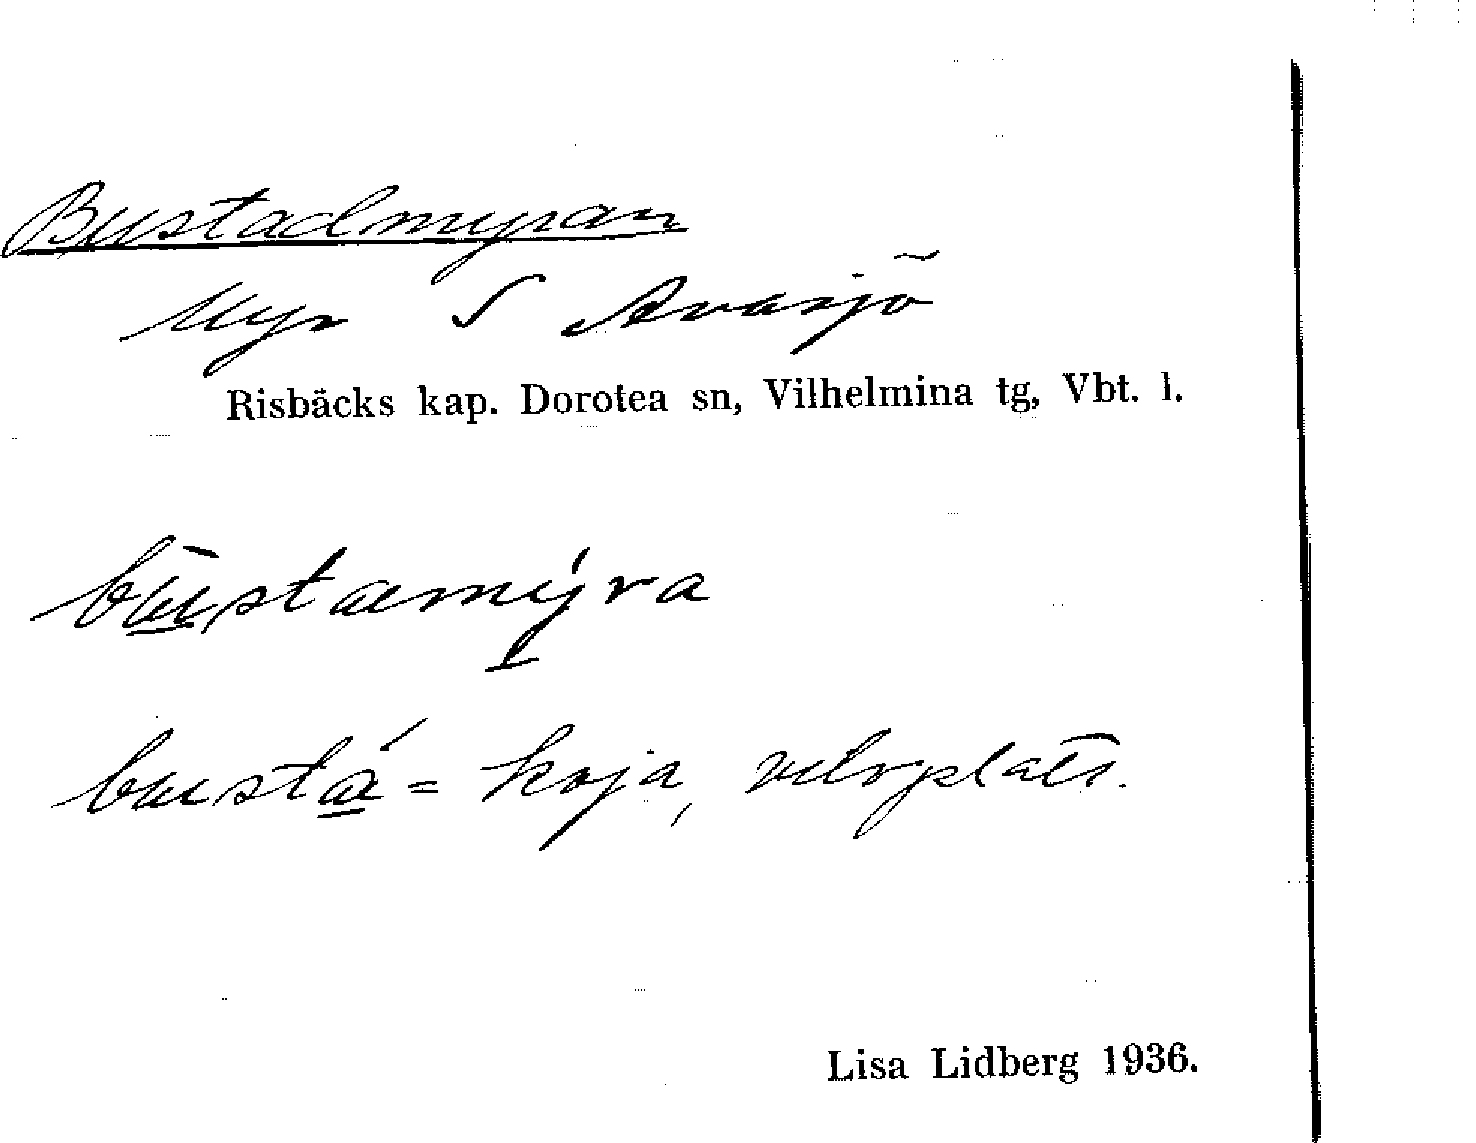 Bustadmyran
Myr S Avasjö
Risbäcks kap. Dorotea sn, Vilhelmina tg, Vbt. l.
bustamyra
bustá = koja, viloplats.
Lisa Lidberg 1936.